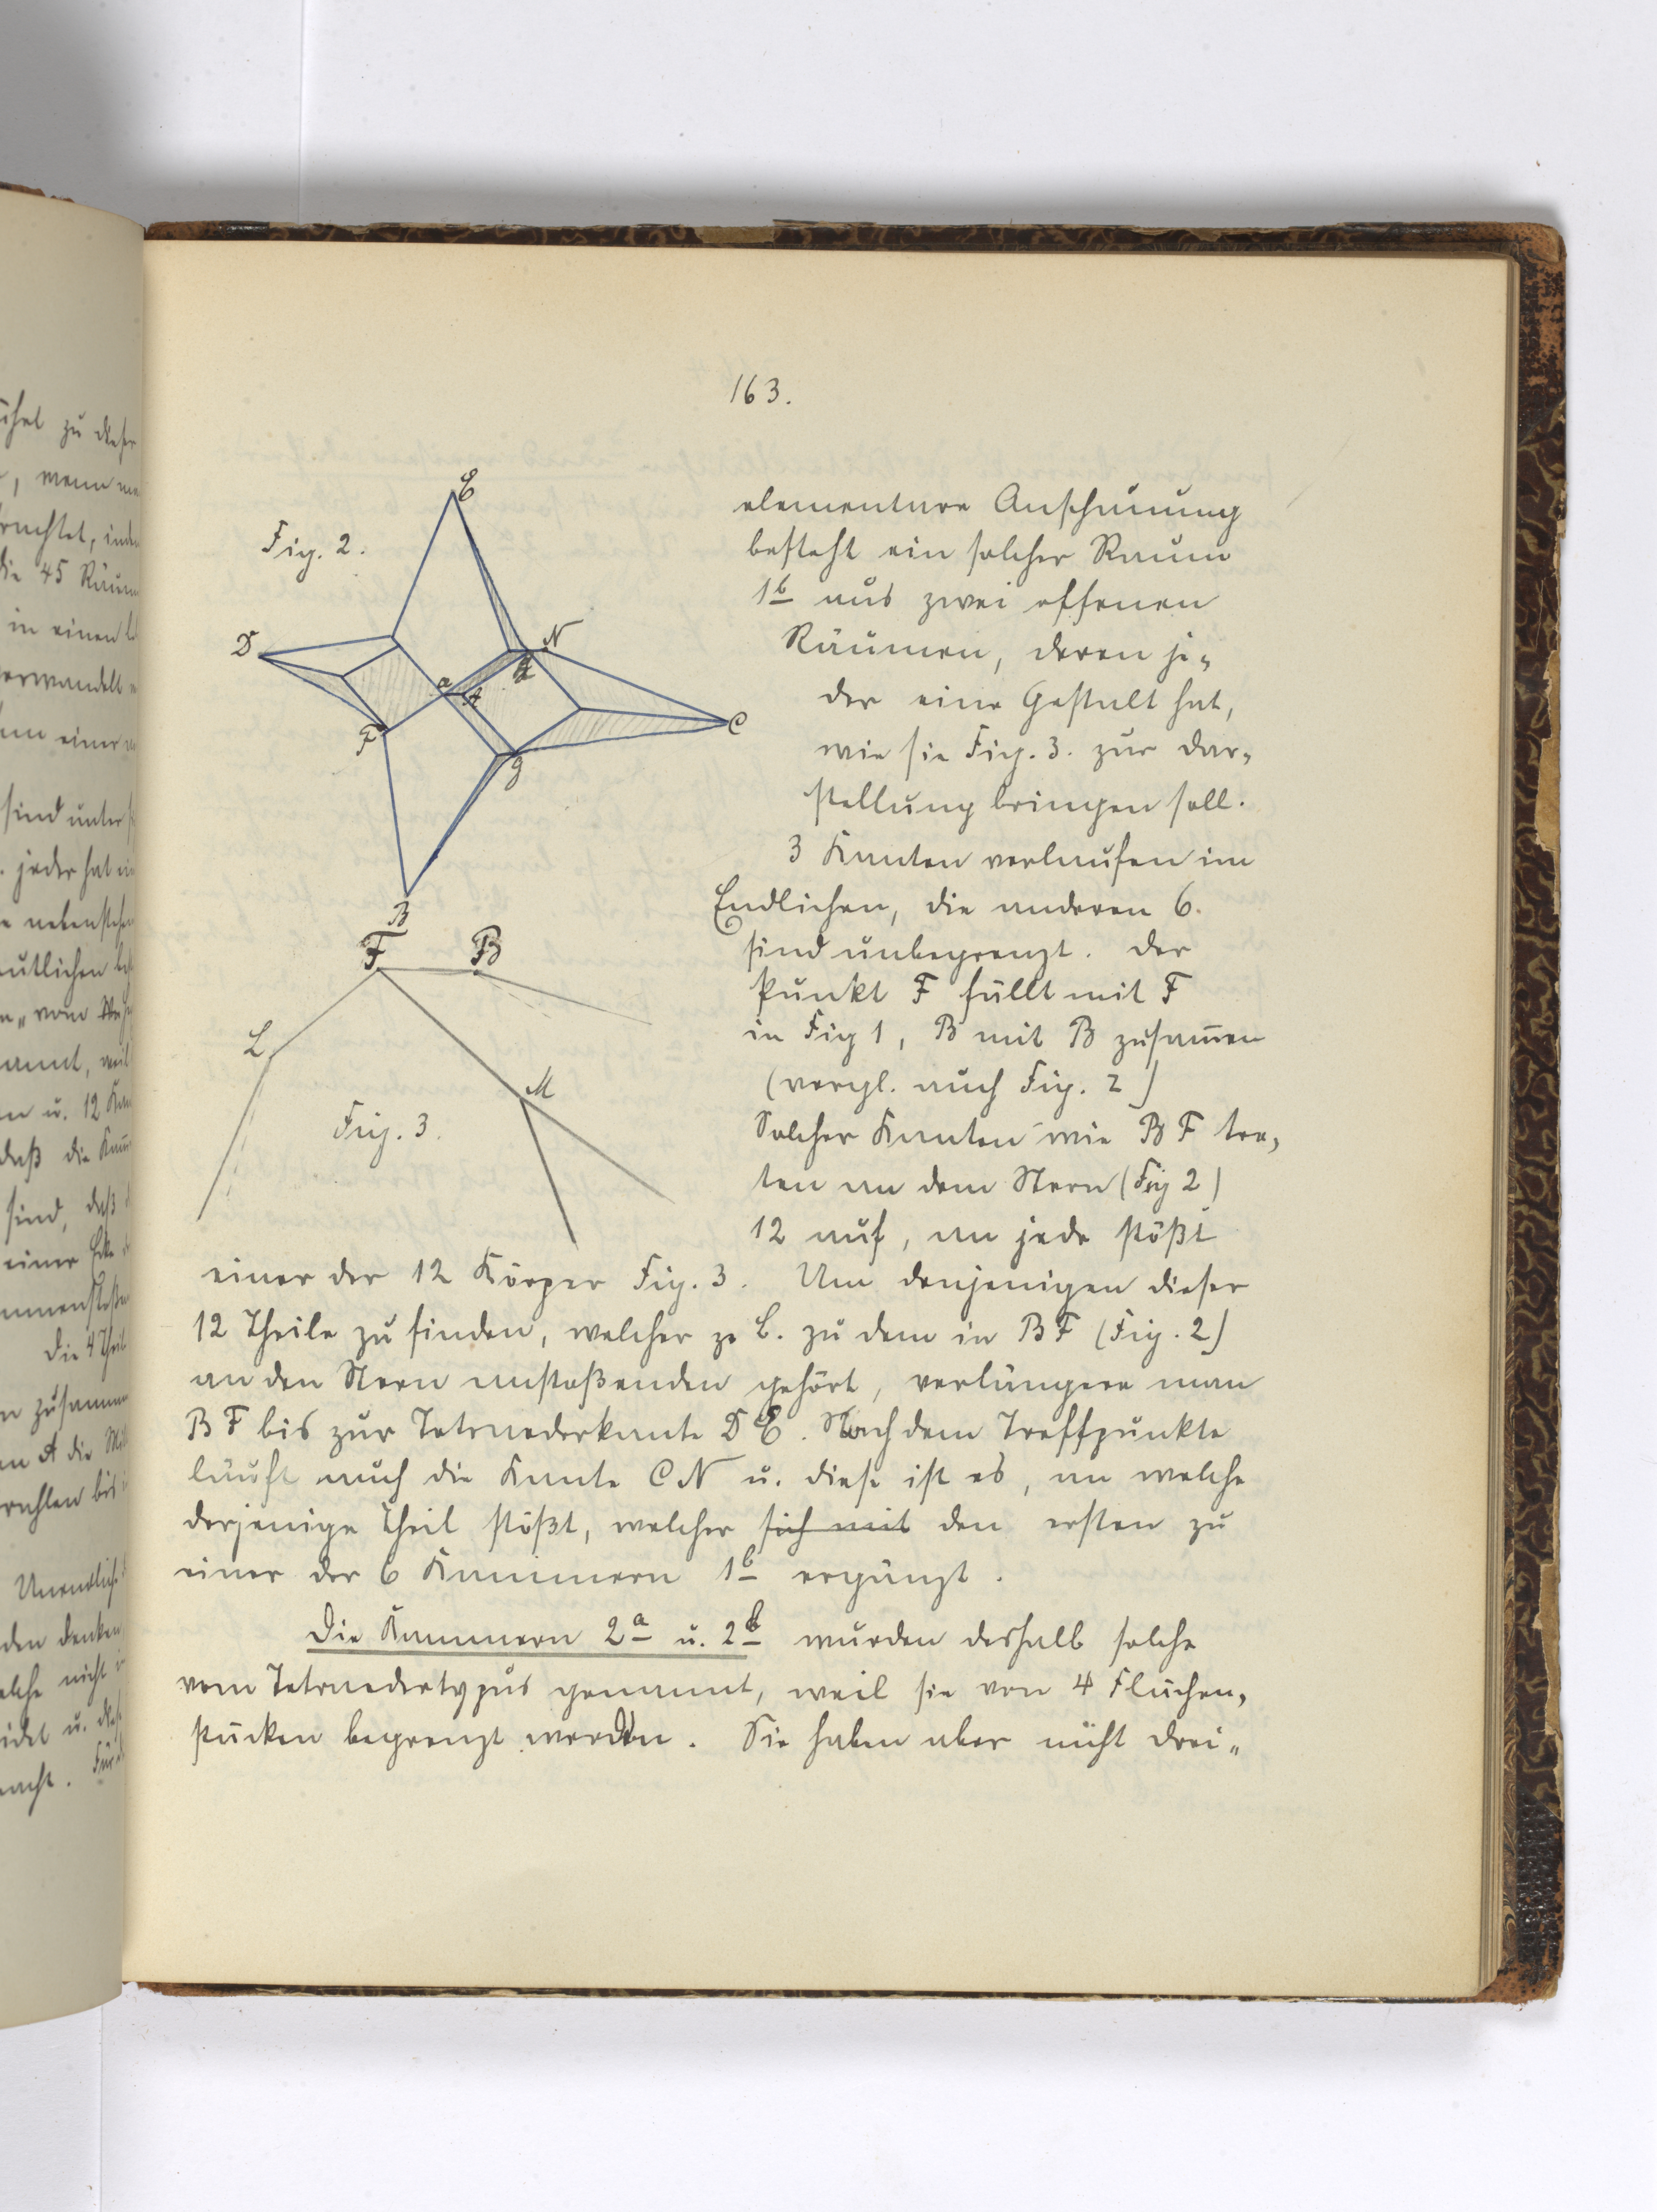 163.
Fig. 2.
E
D
N
a
A
H
F
C
g
B
elementare Anschauung
besteht ein solcher Raum
1b aus zwei offenen
Räumen, deren je-
der eine Gestalt hat,
wie sie Fig. 3. zur Dar-
stellung bringen soll.
3 Kanten verlaufen im
Endlichen, die anderen 6.
sind unbegrenzt. Der
Punkt F fällt mit F
in Fig 1, B mit B zusam̅en
(vergl. auch Fig. 2)
Solcher Kanten wie BF tre-
ten an dem Stern (Fig 2)
12 auf, an jede stößt
F
B
L
M
Fig. 3.
einer der 12 Körper Fig. 3. Um denjenigen dieser
12 Theile zu finden, welcher z. B. zu dem in BF (Fig. 2)
an den Stern anstoßenden gehört, verlängere man
BF bis zur Tetraederkante DE. Nach dem Treffpunkte
läuft auch die Kante CN u. diese ist es, an welche
derjenige Theil stößt, welcher sich mit den ersten zu
einer der 6 Kammern 1b ergänzt.
Die Kammern 2a u. 2b wurden deshalb solche
vom Tetraedertypus genannt, weil sie von 4 Flächen-
stücken begrenzt werden. Sie haben aber nicht drei-
zu dieser
, wenn
die 45
in einen
einer
sind unter
jeder hat
vom
u. 12
daß die
sind, daß
einer Ecke
Die 4
A die
nicht
u.